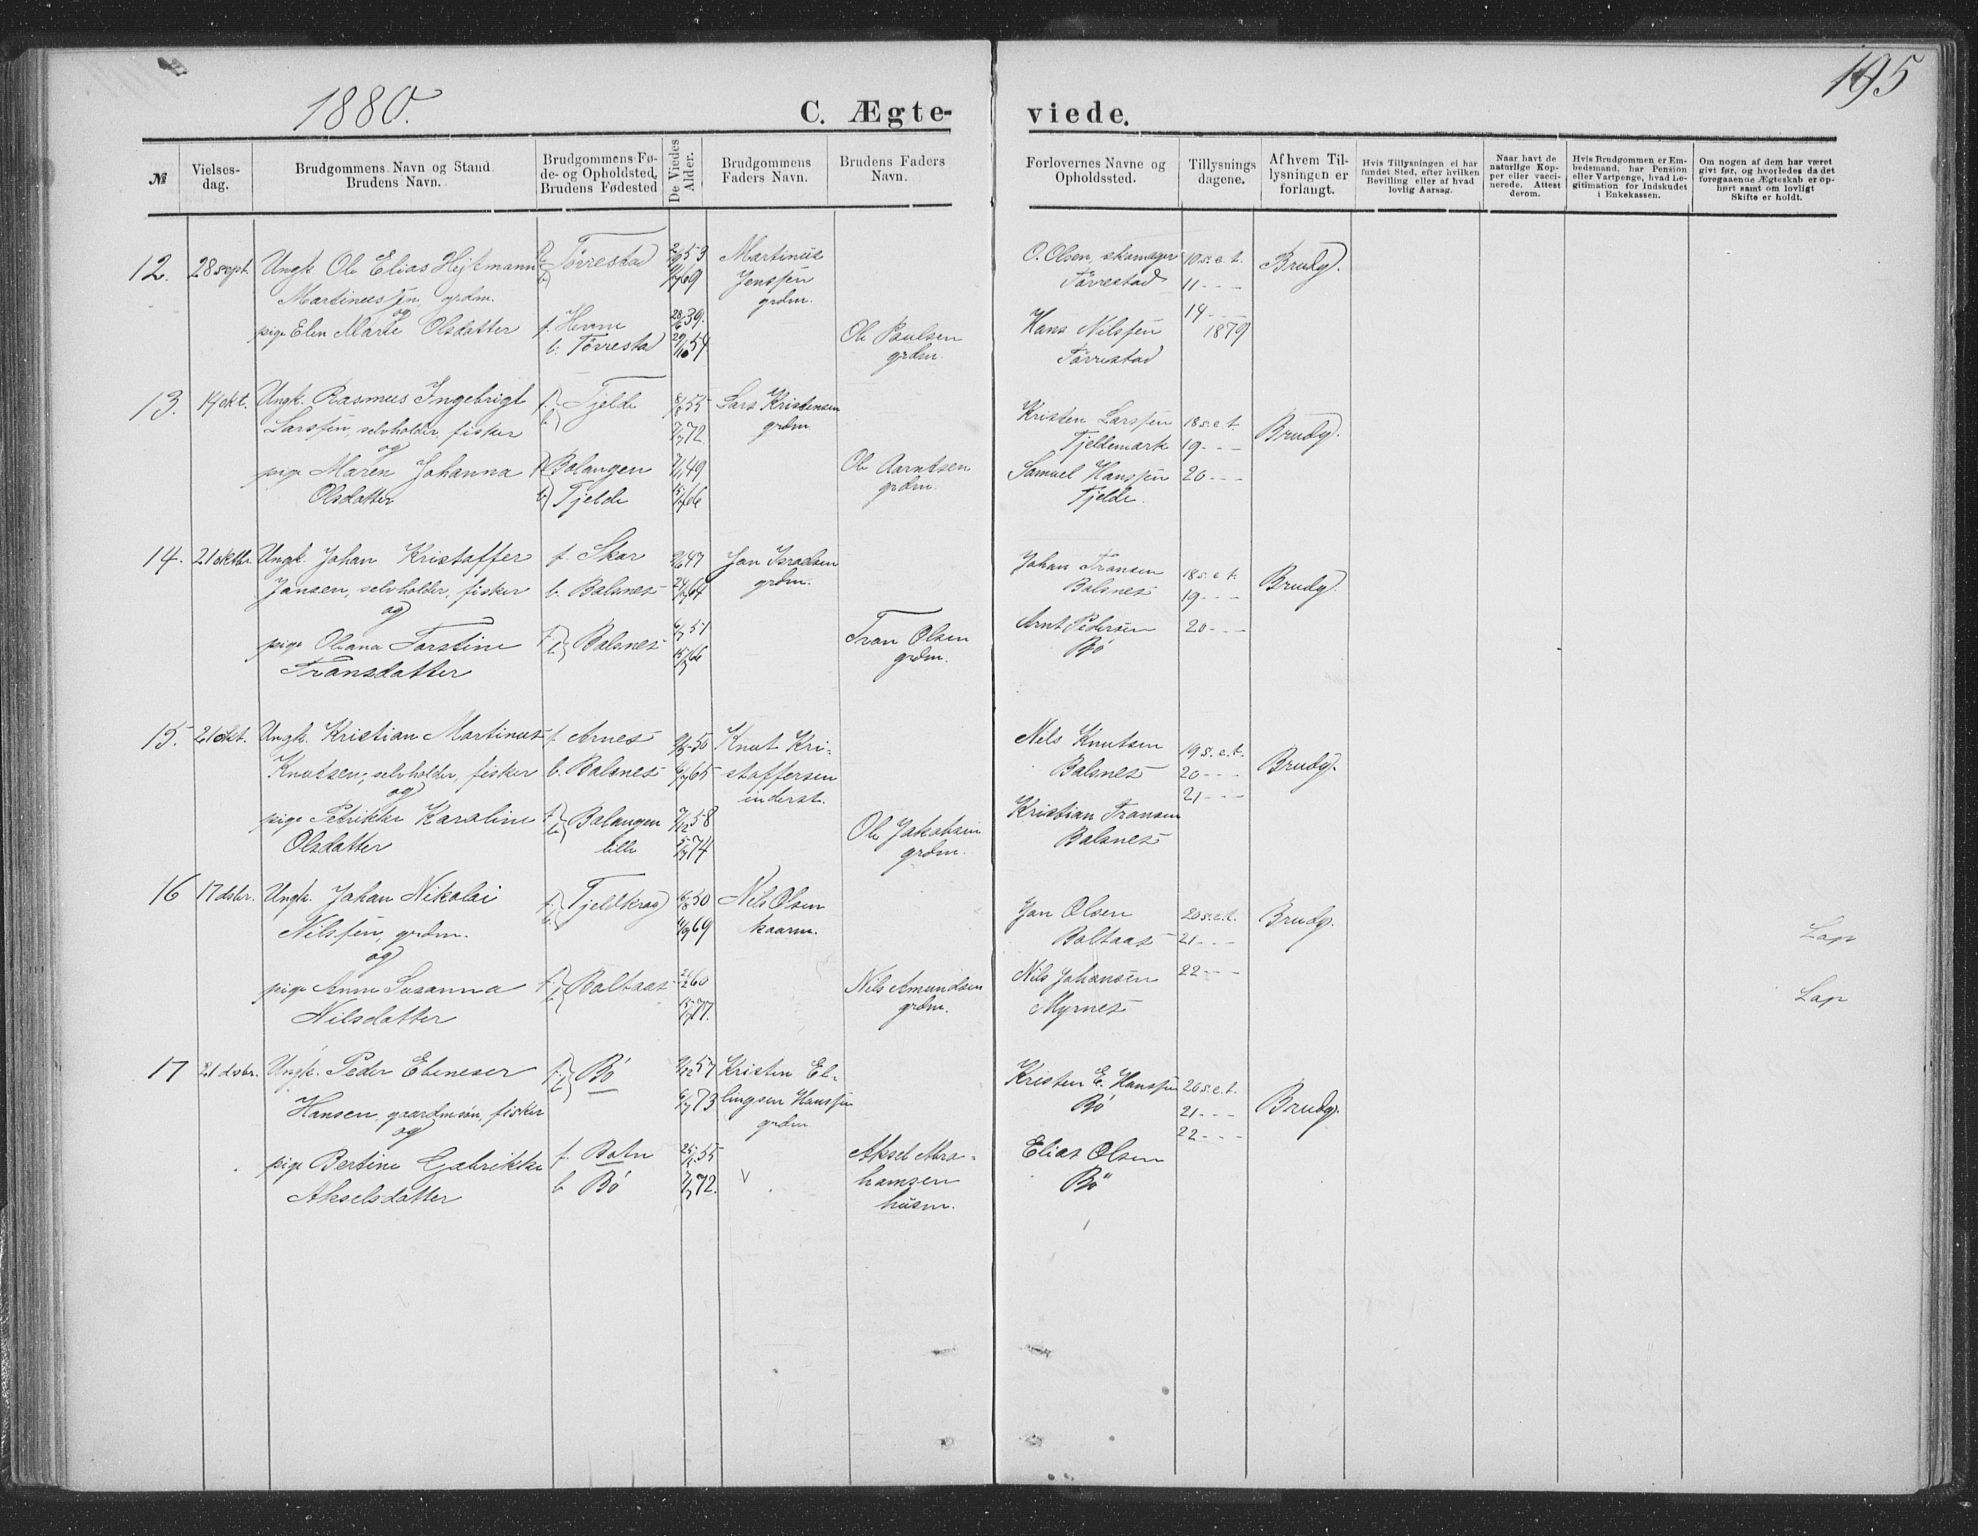 195
1880.
C. Ægte-
viede.
№
Vielses-
dag.
Brudgommens Navn og Stand
Brudens Navn.
Brudgommens Fø-
de- og Opholdsted,
Brudens Fødested
De Viedes
Alder.
Brudgommens
Faders Navn.
Brudens Faders
Navn.
Forlovernes Navne og
Opholdssted.
Tillysnings
dagene.
Af hvem Til-
lysningen er
forlangt.
Hvis Tillysningen ei har
fundet Sted, efter hvilken
Bevilling eller af hvad
lovlig Aarsag.
Naar havt de
naturlige Kop-
per eller vacci-
nerede. Attest
derom.
Hvis Brudgommen er Em-
bedsmand, har Pension
eller Vartpenge, hvad Le-
gitimation for Indskudet
i Enkekassen.
Om nogen af dem har været
givt før, og hvorledes da det
foregaaende Ægteskab er op-
hørt samt om lovligt
Skifte er holdt.
12.
28 sept.
Ungk. Ole Elias Hejtmann
Martinussen, grdm.
og
pige Elen Marie Olsdatter
Tørrestad
f. Hevne
b. Tørrestad
Martinus
Jenssen
grdm.
Ole Paulsen
grdm.
O. Olsen, skomager
Tørrestad
Hans Nilssen
Tørrestad
10 s. e. t.
11 - - -
14 - - -
1879
Brudg.
13.
14 okt.
Ungk. Rasmus Ingebrigt
Larssen, selvholder, fisker
og
pige Maren Johanna
Olsdatter
f. b. Tjelde
f. Balangen
b. Tjelde
8/2 55
7/7 72
Lars Kristensen
grdm.
Ole Arntsen
grdm.
Kristen Larssen
Tjeldemark
Samuel Hanssen
Tjelde.
18 s. e. t.
19 - - -
20 - - -
Brudg.
14.
21 oktbr.
Ungk. Johan Kristoffer
Jansen, selvholder, fisker
og
pige Oliana Torstine
Transdatter
f. Skar
b. Balsnes
f. b. Balsnes
Jan Isradsen
grdm.
Tran Olsen
grdm.
Johan Transen
Balsnes
Arnt Pedersen
Bø
18 s. e. t.
19 - - -
20 - - -
Brudg.
15.
21 okt.
Ungk. Kristian Martinus
Knutsen, selvholder, fisker
og
pige Petrikke Karoline
Olsdatter
f. Arnes
b. Balsnes
f. b. Balangen
lille
Knut Kri-
stoffersen
inderst.
Ole Jakobsen
grdm.
Nils Knutsen
Balsnes
Kristian Transen
Balsnes
19 s. e. t.
20 - - -
21 - - -
Brudg.
16
17 dsbr.
Ungk. Johan Nikolai
Nilssen, grdm.
og
pige Anne Susanna
Nilsdatter
f. b. Tjeldkrog
f. b. Boltaas
Nils Olsen
kaarm.
Nils Amundsen
grdm.
Jon Olsen
Boltaas
Nils Johansen
Myrnes
20 s. e. t.
21 - - -
22 - - -
Brudg.
Lap
Lap
17
21 dsbr.
Ungk. Peder Ebeneser
Hansen, gaardmøn, fisker
og
pige Bertine Gabrikke
Akselsdatter
f. b. Bø
f. Botn
b. Bø
Kristen El-
lingsen Hanssen
grdm.
Aksel Abra-
hamsen
husm.
Kristen E. Hanssen
Bø
Elias Olsen
Bø
20 s. e. t.
21 - - -
22 - - -
Brudg.